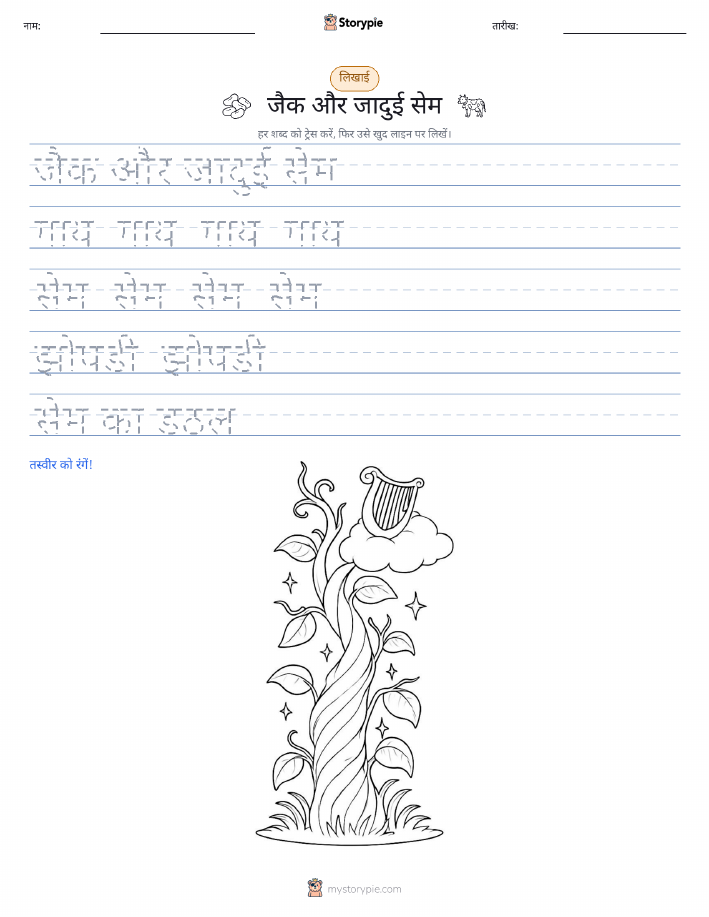 नाम:
Storypie
तारीख:
लिखाई
जैक और जादुई सेम
हर शब्द को ट्रेस करें, फिर उसे खुद लाइन पर लिखें।
जैक और जादुई सेम
गाय गाय गाय गाय
सेम सेम सेम सेम
झोपडी झोपडी
सेम का डठल
तस्वीर को रंगें!
mystorypie.com